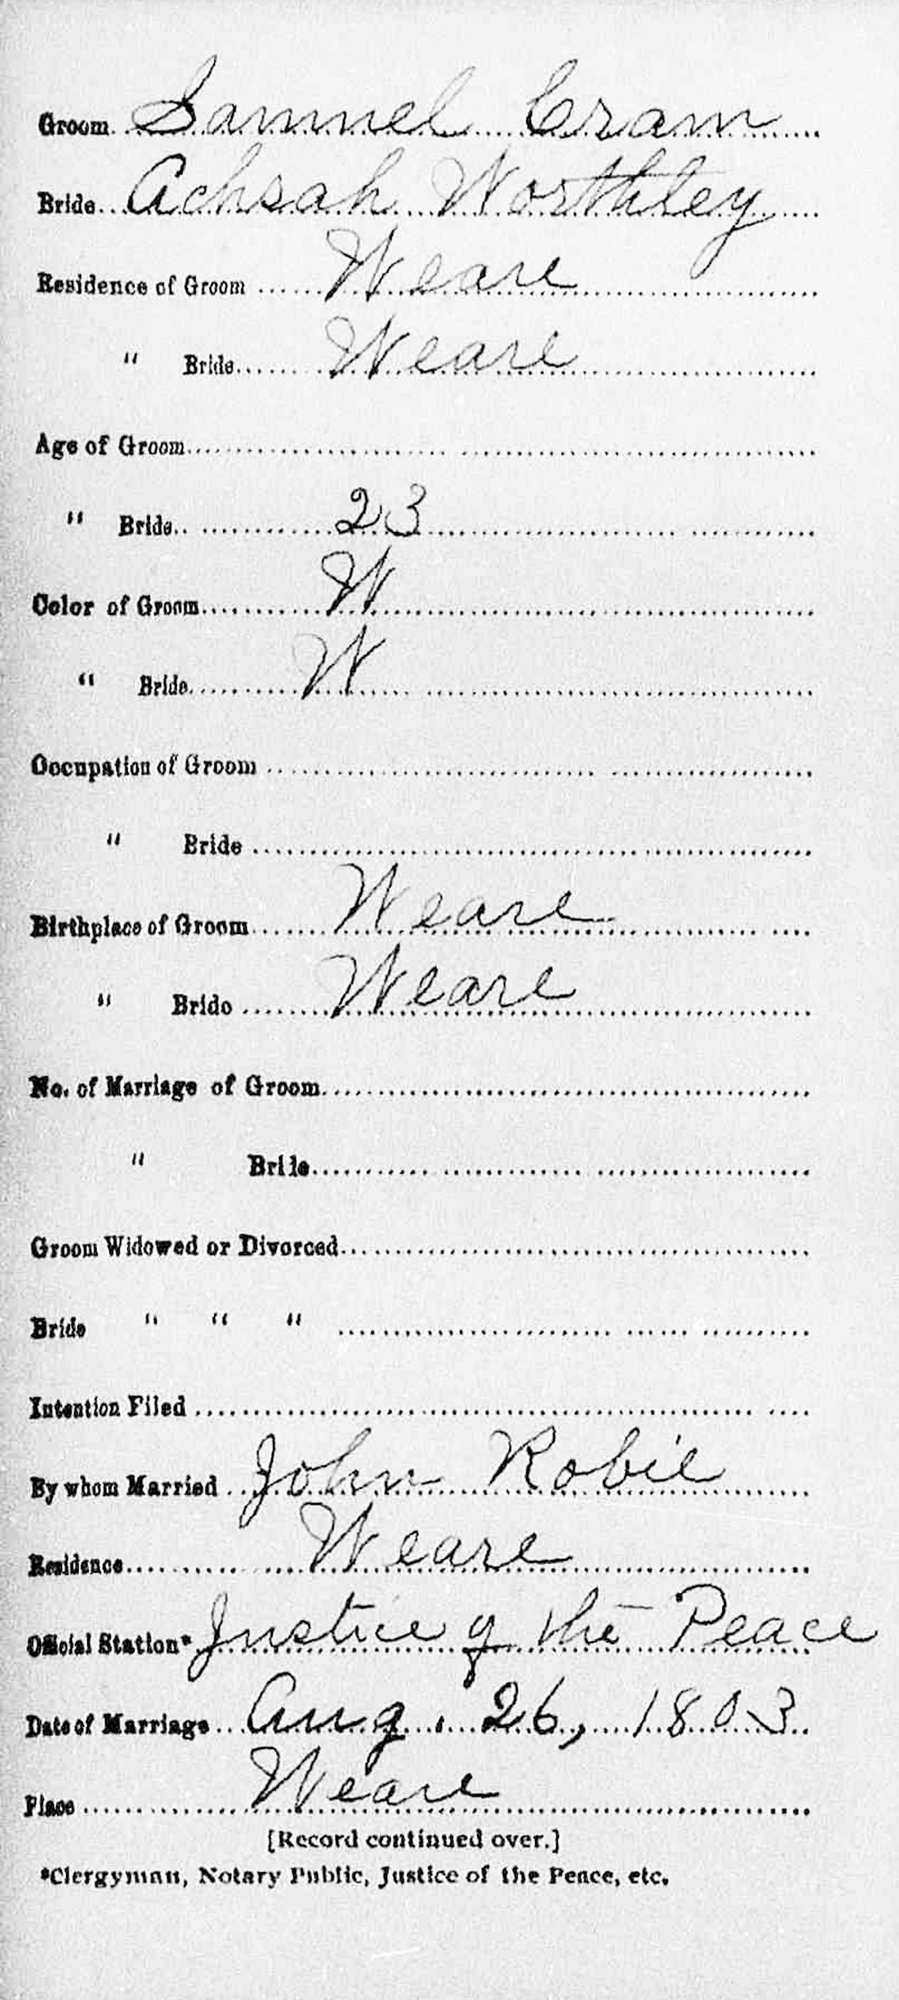 Groom Samuel Cram
Bride Achsah Worthley
Residence of Groom Weare
" Bride Weare
Age of Groom
" Bride 23
Color of Groom W
" Bride W
Occupation of Groom
" Bride
Birthplace of Groom Weare
" Bride Weare
No. of Marriage of Groom
" Bride
Groom Widowed or Divorced
Bride " " "
Intention Filed
By whom Married John Robie
Residence Weare
Official Station* Justice of the Peace
Date of Marriage Aug. 26, 1803
Place Weare
[Record continued over.]
*Clergyman, Notary Public, Justice of the Peace, etc.